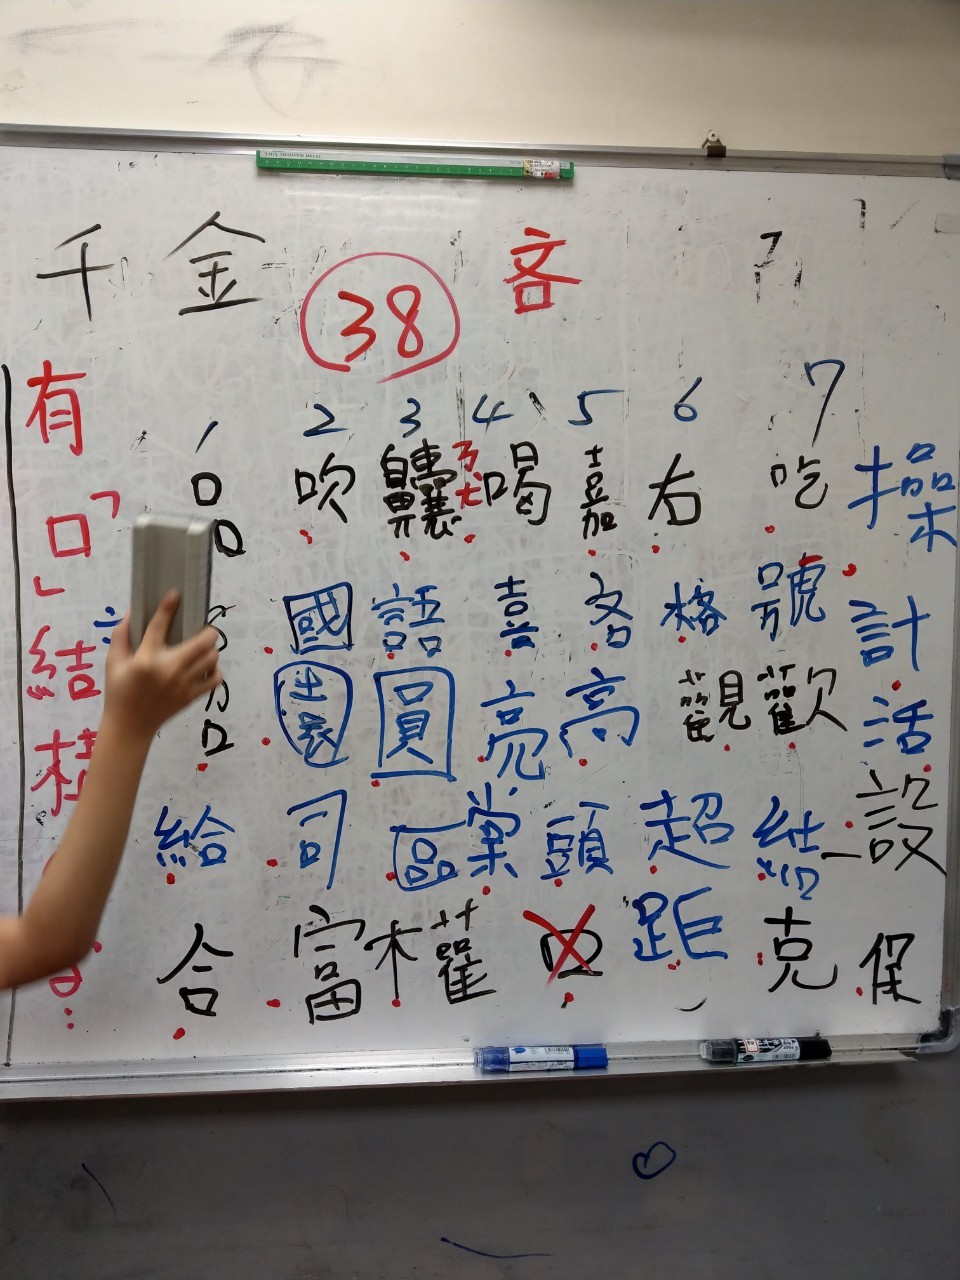 千金 38 吝
有「口」結構
1 2 3 4 5 6 7
吹 喝 嘉 右 吃 操
國 語 喜 客 格 號 計
圓 亮 高 觀 歡 活
給 司 區 棠 頭 超 結 設
合 富 權 四 距 克 保